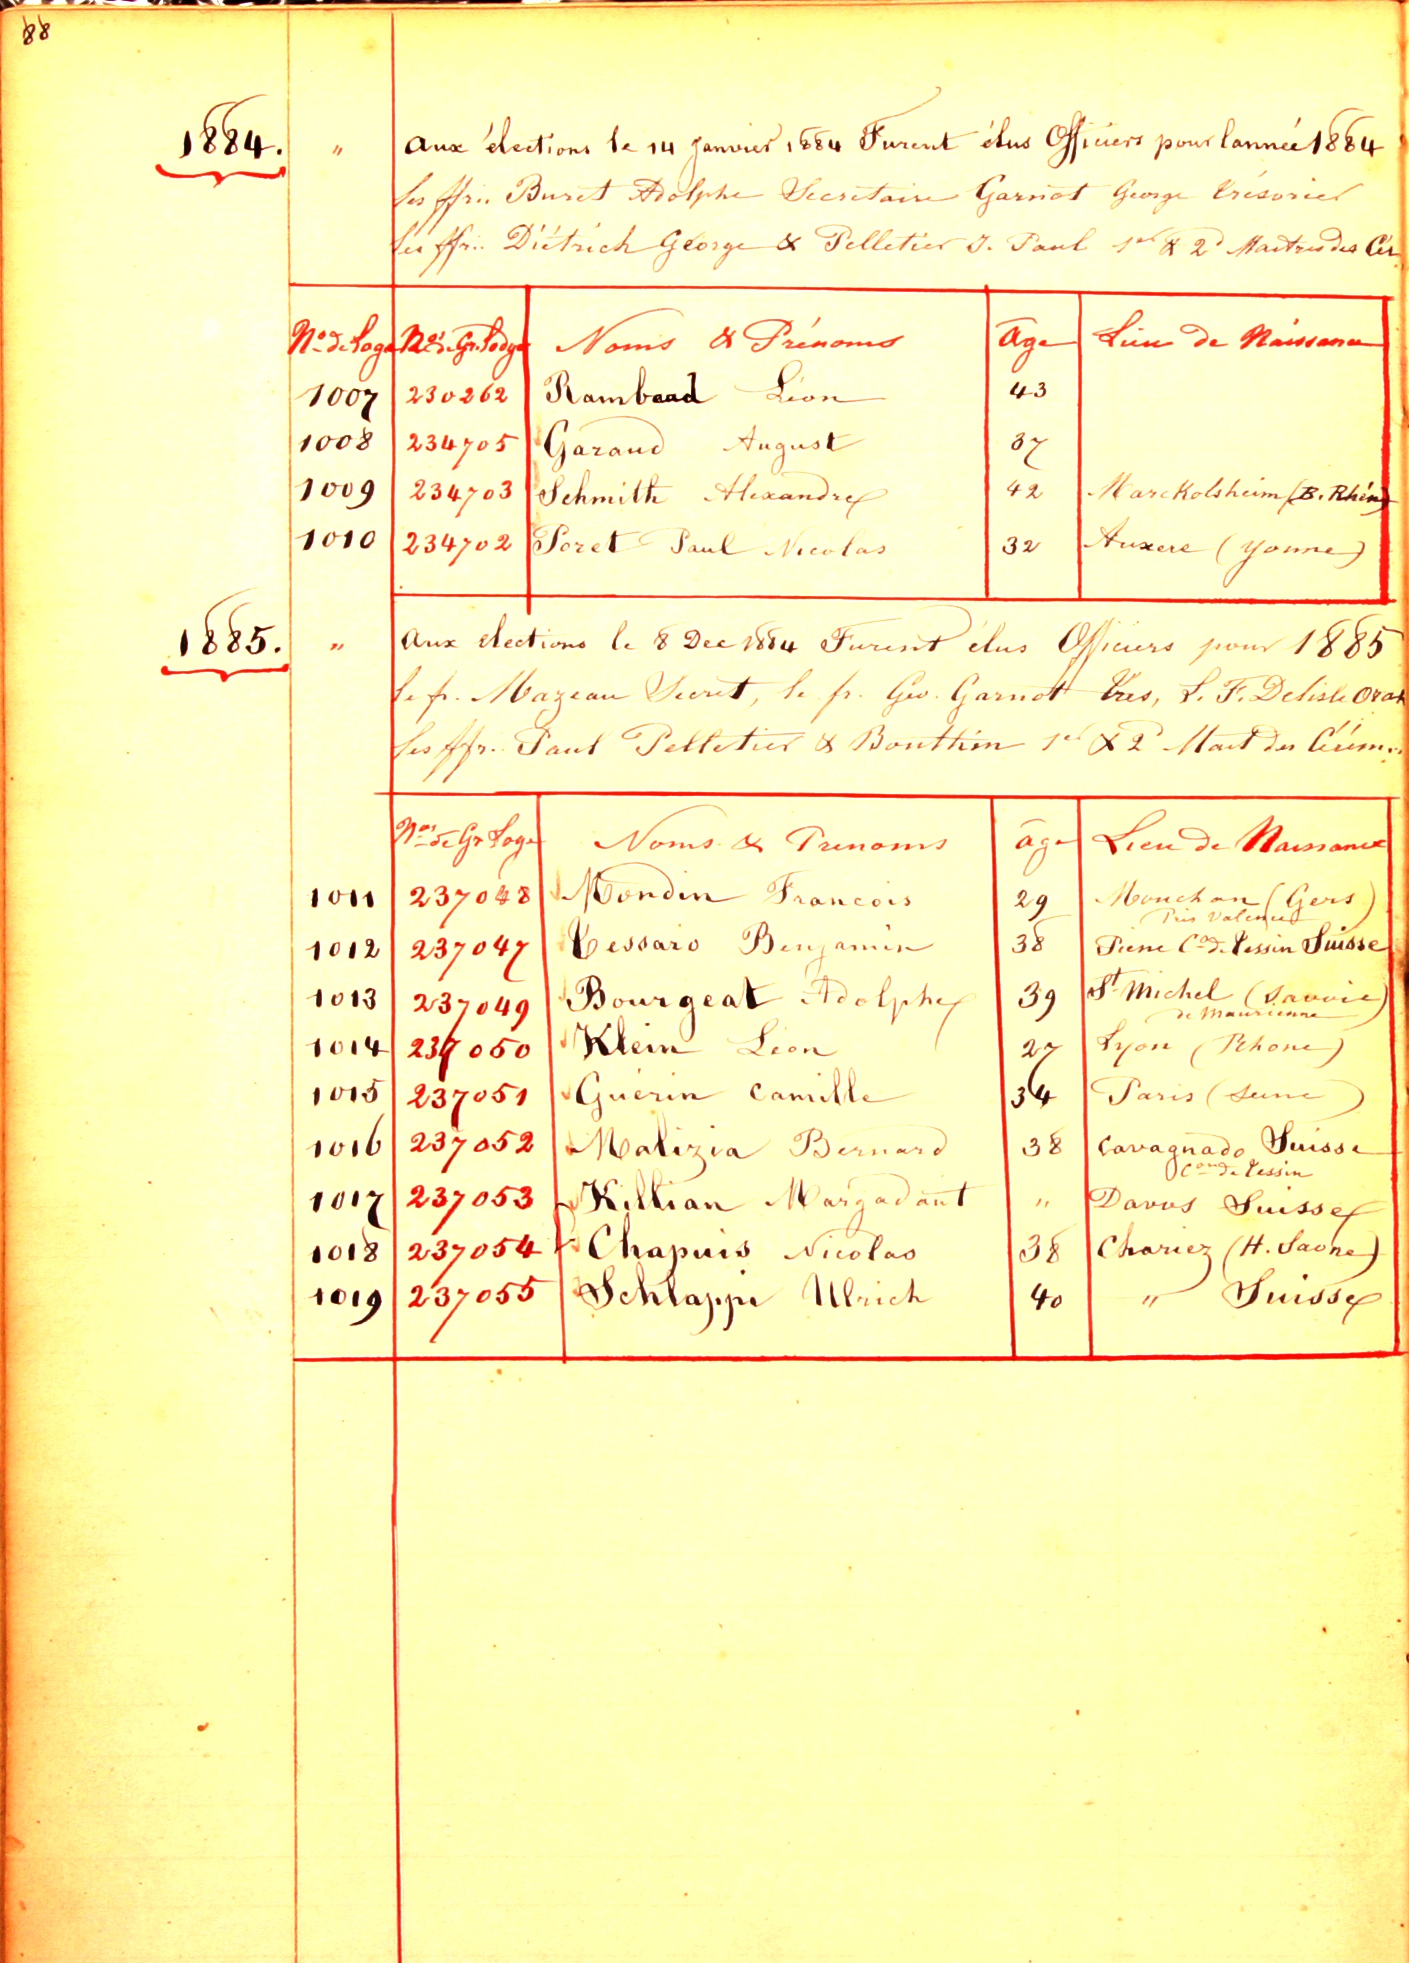 88
1884. " Aux élections le 14 janvier 1884 Furent élus Officiers pour l'année 1884
les ffr.. Buret Adolphe Secretaire Garnot George trésorier
les ffr.. Diétrich George & Pelletier J. Paul 1er & 2d Maitres des Cér
No. de Loge Nos. de Gr. Lodge Noms & Prénoms Age Lieu de Naissance
1007 230262 Rambaud Léon 43
1008 234705 Garaud August 37
1009 234703 Schmith Alexandre 42 Marckolsheim (B. Rhin)
1010 234702 Poret Paul Nicolas 32 Auxere (Yonne)
1885. " Aux elections le 8 Dec 1884 Furent élus Officiers pour 1885
le fr. Mazeau Secret, le fr. Geo. Garnot Tres, L. F. Delisle Orat
les ffr.. Paul Pelletier & Bouthin 1er & 2d Mait des Cérém..
Nos. de Gr Loge Noms & Prenoms age Lieu de Naissance
1011 237048 Mondin Francois 29 Mouchan (Gers)
Près Valence
1012 237047 Tessaro Benjamin 38 Con de Tessin Suisse
1013 237049 Bourgeat Adolphe 39 St Michel (Savoie)
de Maurienne
1014 237050 Klein Léon 27 Lyon (Rhone)
1015 237051 Guérin Camille 34 Paris (Seine)
1016 237052 Malizia Bernard 38 Cavagnado Suisse
Con de Tessin
1017 237053 Killian Margadant " Davos Suisse
1018 237054 Chapuis Nicolas 38 Chariez (H. Saone)
1019 237055 Schlappi Ulrich 40 " Suisse